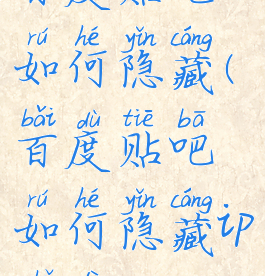 rú hé yǐn cáng
如何隐藏(
bǎi dù tiē bā
百度贴吧
rú hé yǐn cáng
如何隐藏